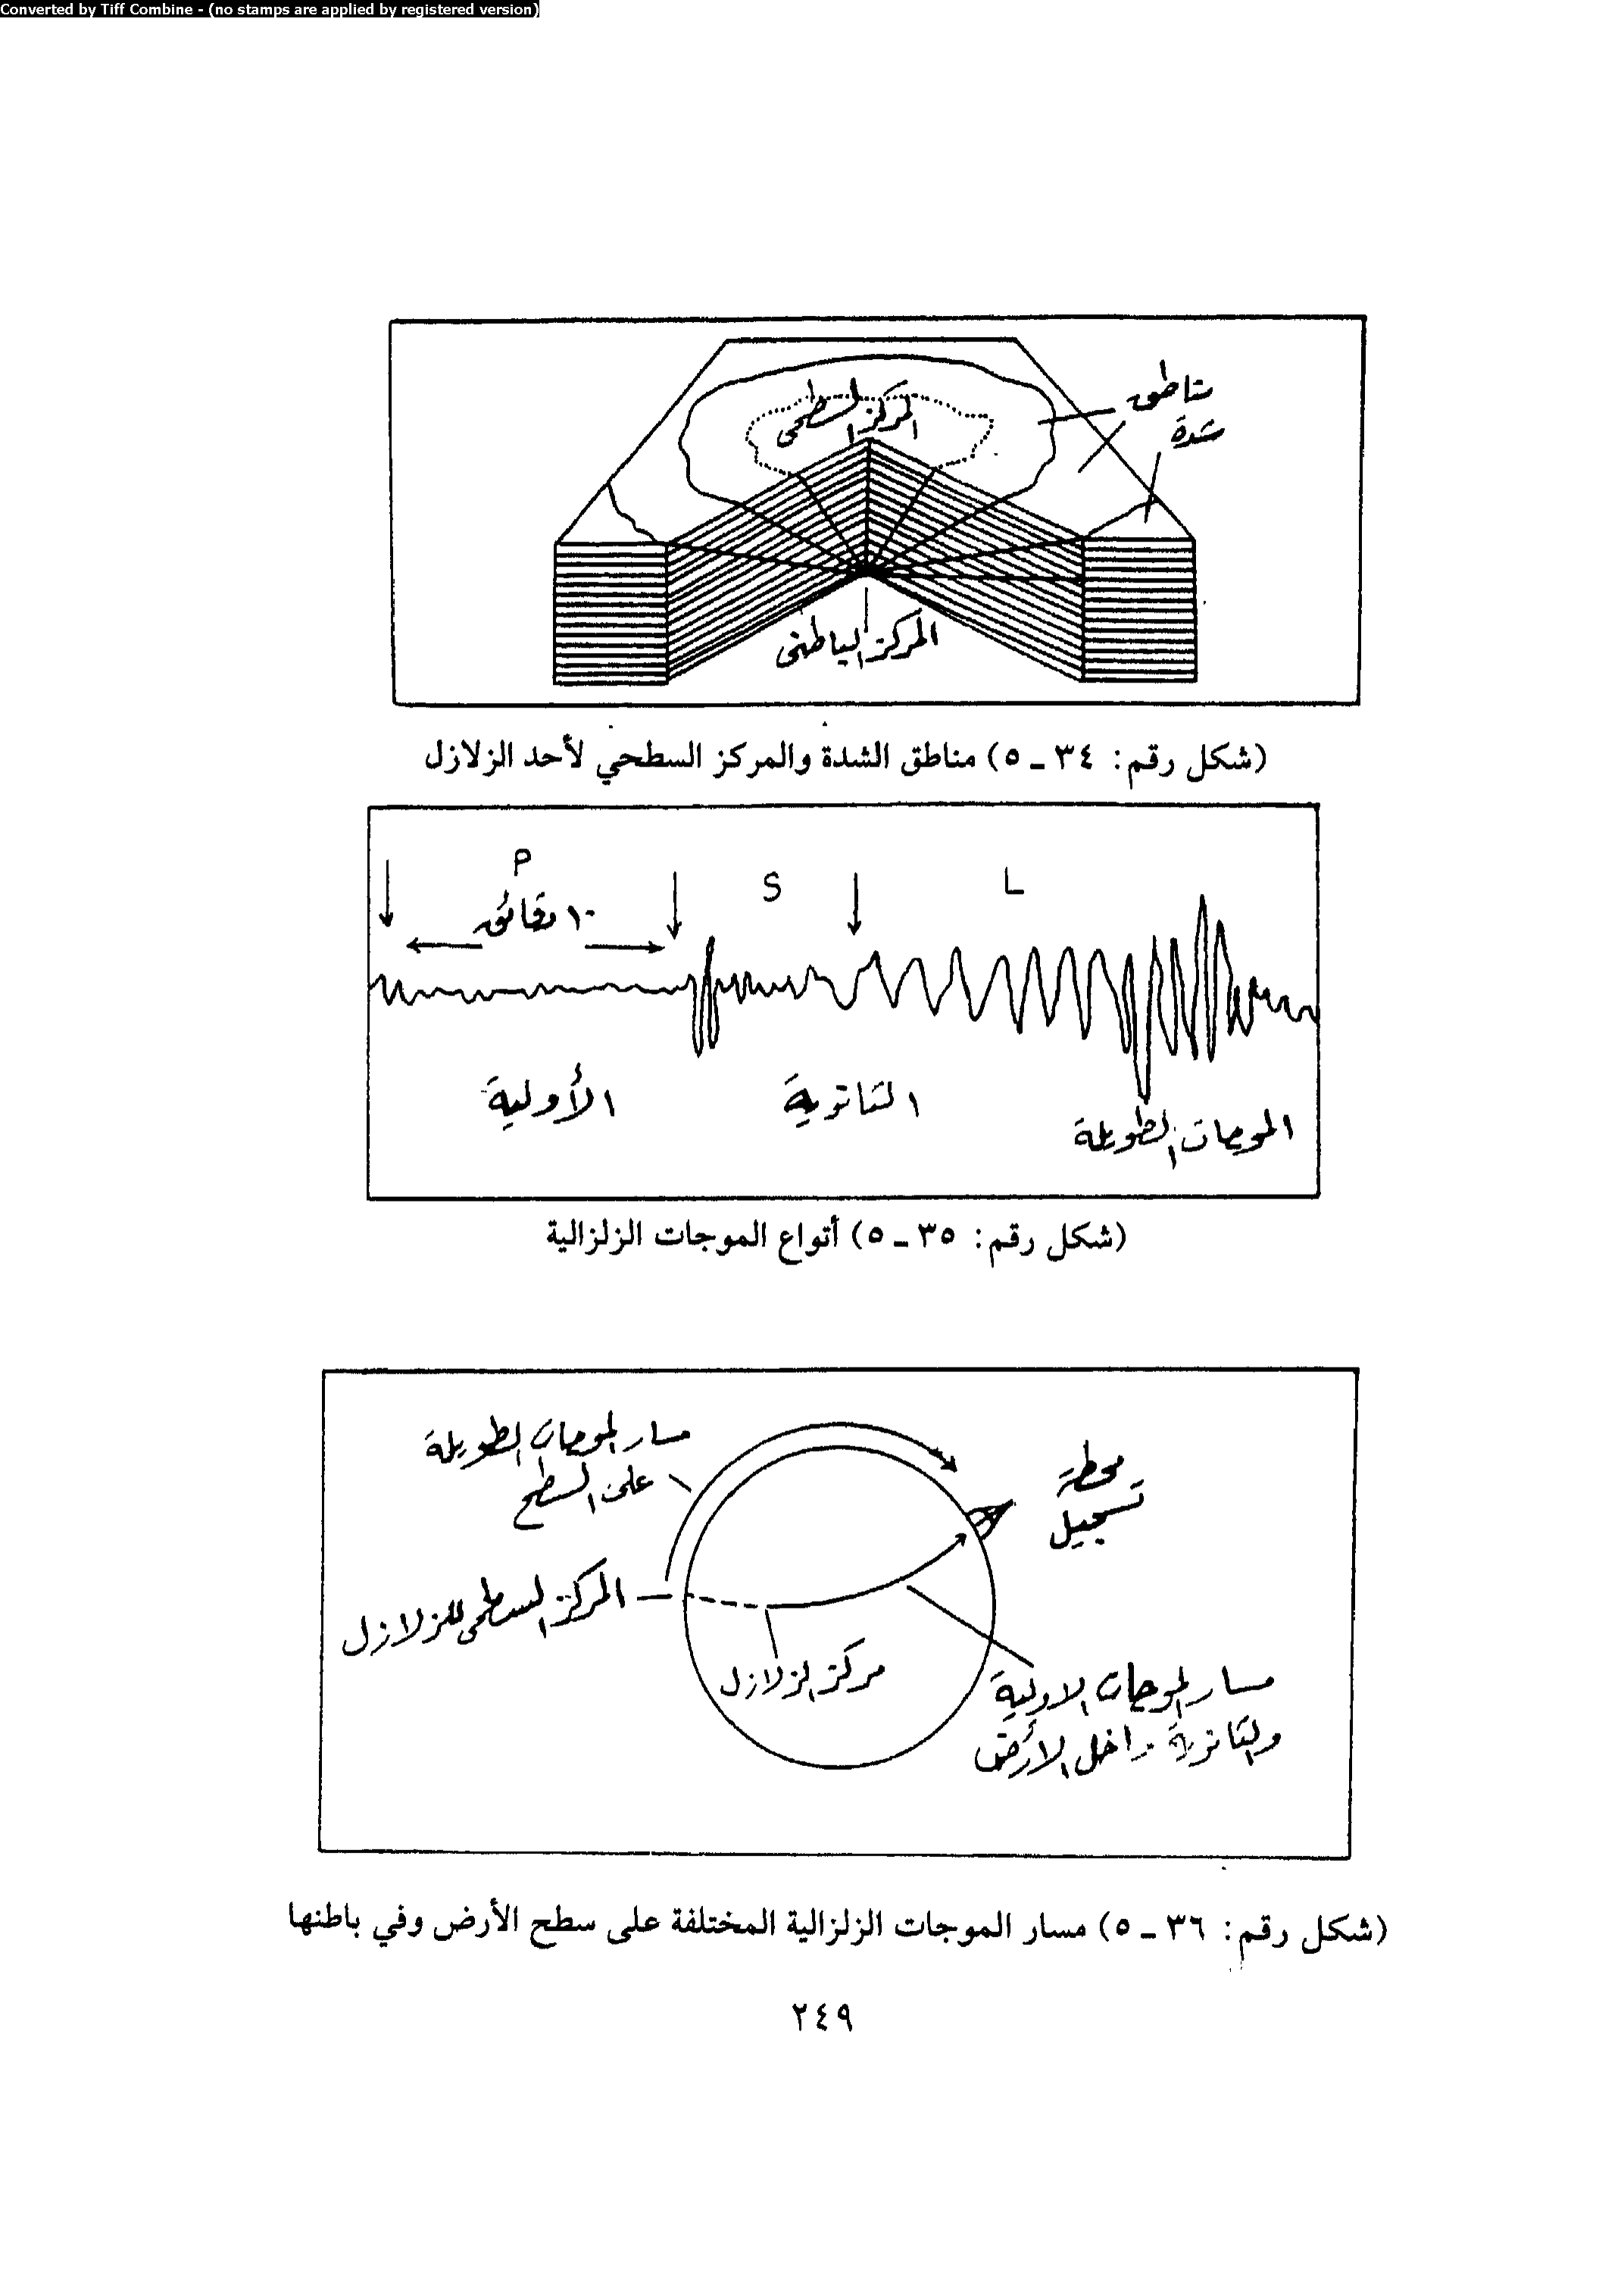 Converted by Tiff Combine - (no stamps are applied by registered version)
مناطق
شدة
المركز السطحى
المركز الباطنى
(شكل رقم: ٣٤ - ٥) مناطق الشدة والمركز السطحي لأحد الزلازل
P
S
L
١٠ دقائق
الأولية
الثانوية
الموجات الطويلة
(شكل رقم: ٣٥ - ٥) أنواع الموجات الزلزالية
مسار الموجات الطويلة
على السطح
محطة
تسجيل
المركز السطحى للزلازل
مركز الزلازل
مسار الموجات الاولية
والثانوية داخل الأرض
(شكل رقم: ٣٦ - ٥) مسار الموجات الزلزالية المختلفة على سطح الأرض وفي باطنها
٢٤٩